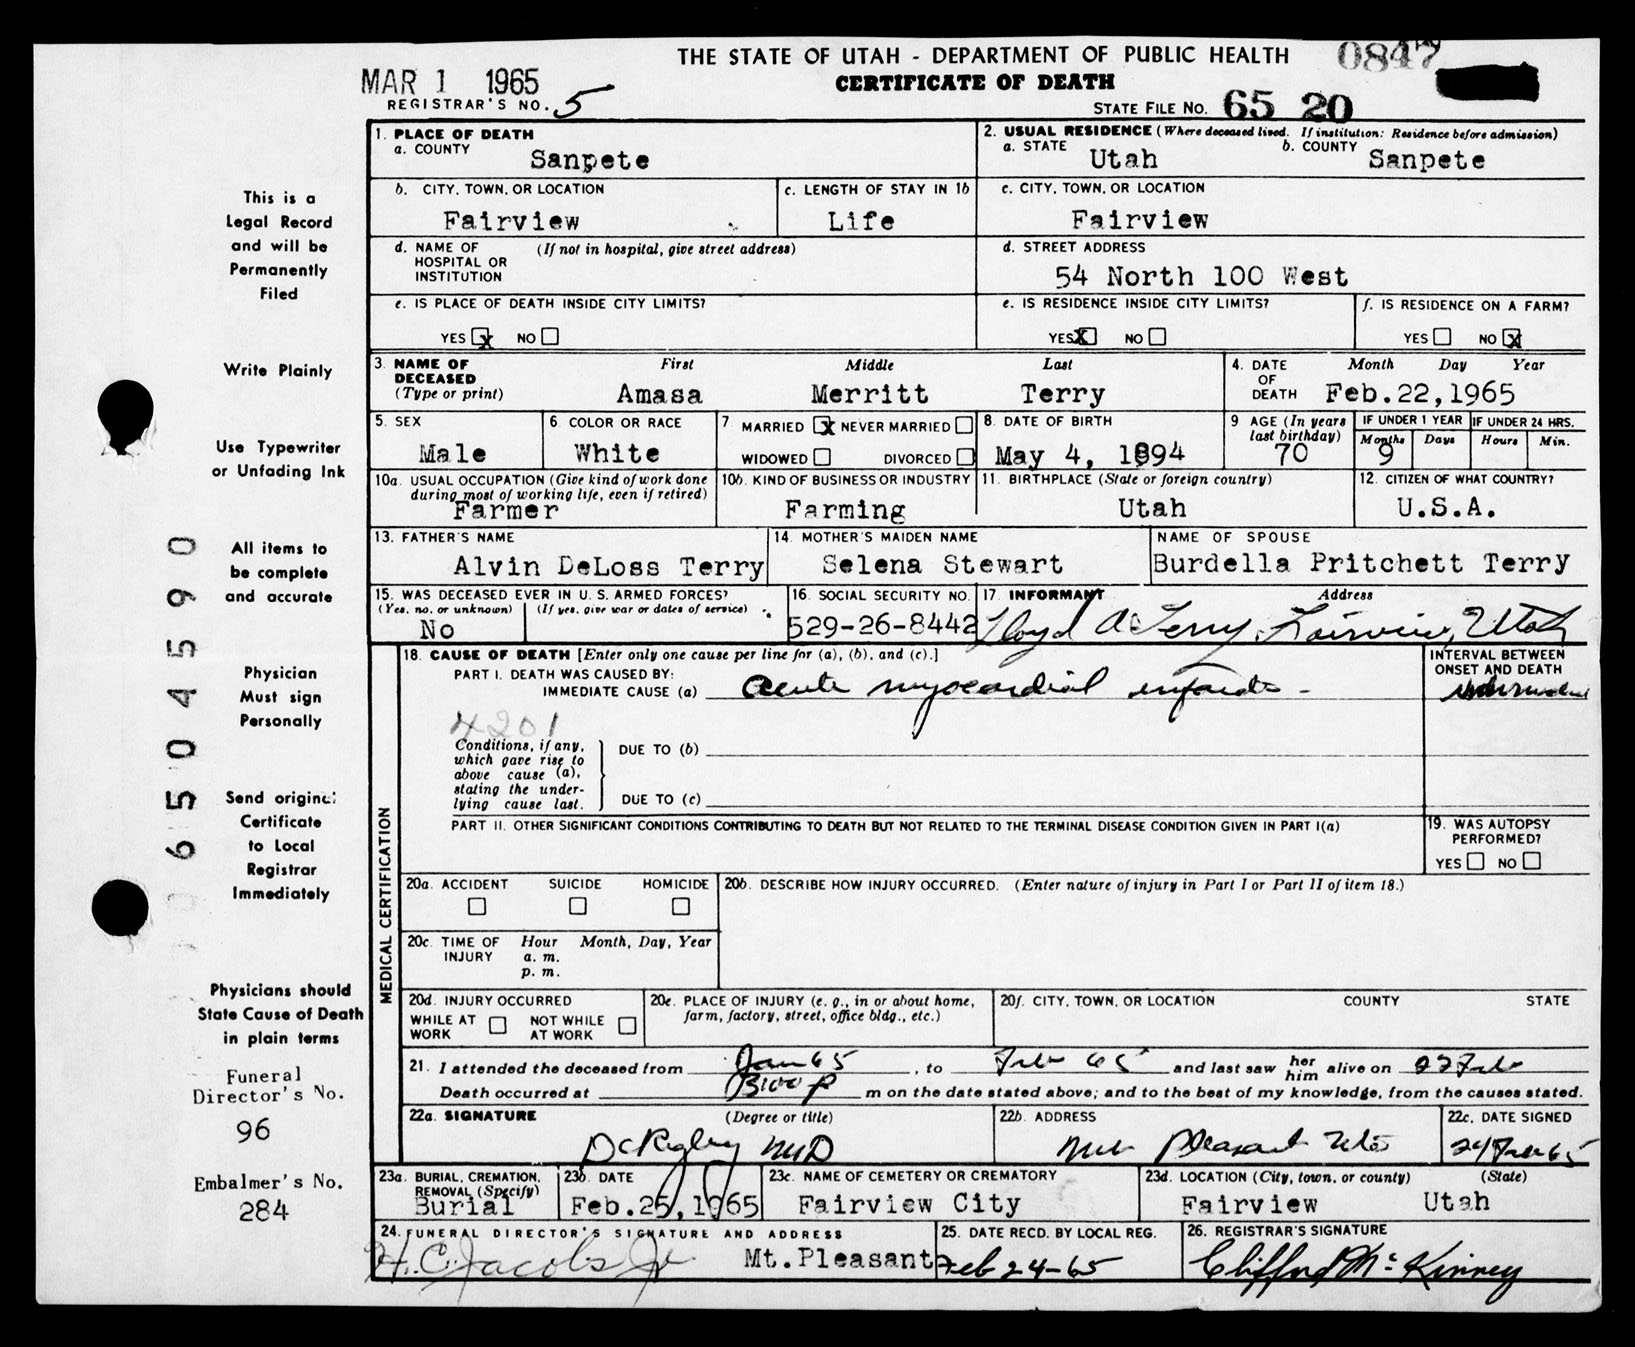 THE STATE OF UTAH - DEPARTMENT OF PUBLIC HEALTH
0847
MAR 1 1965
CERTIFICATE OF DEATH
REGISTRAR'S NO. 5
STATE FILE NO. 65 20
1. PLACE OF DEATH
a. COUNTY
Sanpete
2. USUAL RESIDENCE (Where deceased lived. If institution: Residence before admission)
a. STATE Utah b. COUNTY Sanpete
b. CITY, TOWN, OR LOCATION
Fairview
c. LENGTH OF STAY IN 1b
Life
c. CITY, TOWN, OR LOCATION
Fairview
d. NAME OF HOSPITAL OR INSTITUTION (If not in hospital, give street address)
d. STREET ADDRESS
54 North 100 West
e. IS PLACE OF DEATH INSIDE CITY LIMITS?
YES X NO
e. IS RESIDENCE INSIDE CITY LIMITS?
YES X NO
f. IS RESIDENCE ON A FARM?
YES NO X
3. NAME OF DECEASED (Type or print)
First Middle Last
Amasa Merritt Terry
4. DATE OF DEATH
Month Day Year
Feb.22,1965
5. SEX
Male
6 COLOR OR RACE
White
7 MARRIED X NEVER MARRIED
WIDOWED DIVORCED
8. DATE OF BIRTH
May 4, 1894
9 AGE (In years last birthday)
70
IF UNDER 1 YEAR
Months Days
9
IF UNDER 24 HRS.
Hours Min.
10a. USUAL OCCUPATION (Give kind of work done during most of working life, even if retired)
Farmer
10b. KIND OF BUSINESS OR INDUSTRY
Farming
11. BIRTHPLACE (State or foreign country)
Utah
12. CITIZEN OF WHAT COUNTRY?
U.S.A.
13. FATHER'S NAME
Alvin DeLoss Terry
14. MOTHER'S MAIDEN NAME
Selena Stewart
NAME OF SPOUSE
Burdella Pritchett Terry
15. WAS DECEASED EVER IN U.S. ARMED FORCES?
(Yes, no, or unknown) (If yes, give war or dates of service)
No
16. SOCIAL SECURITY NO.
529-26-8442
17. INFORMANT Address
Lloyd A Terry, Fairview, Utah
18. CAUSE OF DEATH [Enter only one cause per line for (a), (b), and (c).]
PART I. DEATH WAS CAUSED BY:
IMMEDIATE CAUSE (a) Acute myocardial infarct -
4201
Conditions, if any, which gave rise to above cause (a), stating the underlying cause last.
DUE TO (b)
DUE TO (c)
INTERVAL BETWEEN ONSET AND DEATH
PART II. OTHER SIGNIFICANT CONDITIONS CONTRIBUTING TO DEATH BUT NOT RELATED TO THE TERMINAL DISEASE CONDITION GIVEN IN PART I(a)
19. WAS AUTOPSY PERFORMED?
YES NO
MEDICAL CERTIFICATION
20a. ACCIDENT SUICIDE HOMICIDE
20b. DESCRIBE HOW INJURY OCCURRED. (Enter nature of injury in Part I or Part II of item 18.)
20c. TIME OF INJURY
Hour Month, Day, Year
a. m.
p. m.
20d. INJURY OCCURRED
WHILE AT WORK NOT WHILE AT WORK
20e. PLACE OF INJURY (e. g., in or about home, farm, factory, street, office bldg., etc.)
20f. CITY, TOWN, OR LOCATION COUNTY STATE
21. I attended the deceased from Jan 65, to Feb 65 and last saw her him alive on 22 Feb
Death occurred at 3:00 P m on the date stated above; and to the best of my knowledge, from the causes stated.
22a. SIGNATURE (Degree or title)
DC Rigby MD
22b. ADDRESS
Mt. Pleasant Utah
22c. DATE SIGNED
24 Feb 65
23a. BURIAL, CREMATION, REMOVAL (Specify)
Burial
23b. DATE
Feb.25,1965
23c. NAME OF CEMETERY OR CREMATORY
Fairview City
23d. LOCATION (City, town, or county) (State)
Fairview Utah
24. FUNERAL DIRECTOR'S SIGNATURE AND ADDRESS
H.C. Jacobs Jr Mt.Pleasant
25. DATE RECD. BY LOCAL REG.
Feb 24-65
26. REGISTRAR'S SIGNATURE
Clifford Mc Kinney
This is a
Legal Record
and will be
Permanently
Filed
Write Plainly
Use Typewriter
or Unfading Ink
All items to
be complete
and accurate
Physician
Must sign
Personally
Send original
Certificate
to Local
Registrar
Immediately
Physicians should
State Cause of Death
in plain terms
Funeral
Director's No.
96
Embalmer's No.
284
0650 4590